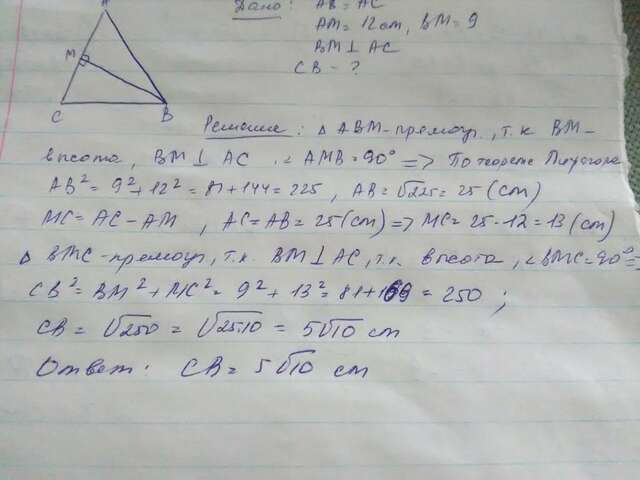 A
M
C
B
Дано: AB = AC
AM = 12 cm, BM = 9
BM ⊥ AC
CB - ?
Решение: Δ ABM - прямоуг, т.к BM-
высота, BM ⊥ AC ∠ AMB = 90° => По теореме Пифагора
AB² = 9² + 12² = 81 + 144 = 225, AB = √225 = 25 (cm)
MC = AC - AM, AC = AB = 25 (cm) => MC = 25 - 12 = 13 (cm)
Δ BMC - прямоуг, т.к. BM ⊥ AC, т.к. высота, ∠BMC = 90° =
CB² = BM² + MC² = 9² + 13² = 81 + 169 = 250;
CB = √250 = √25·10 = 5√10 cm
Ответ: CB = 5√10 cm